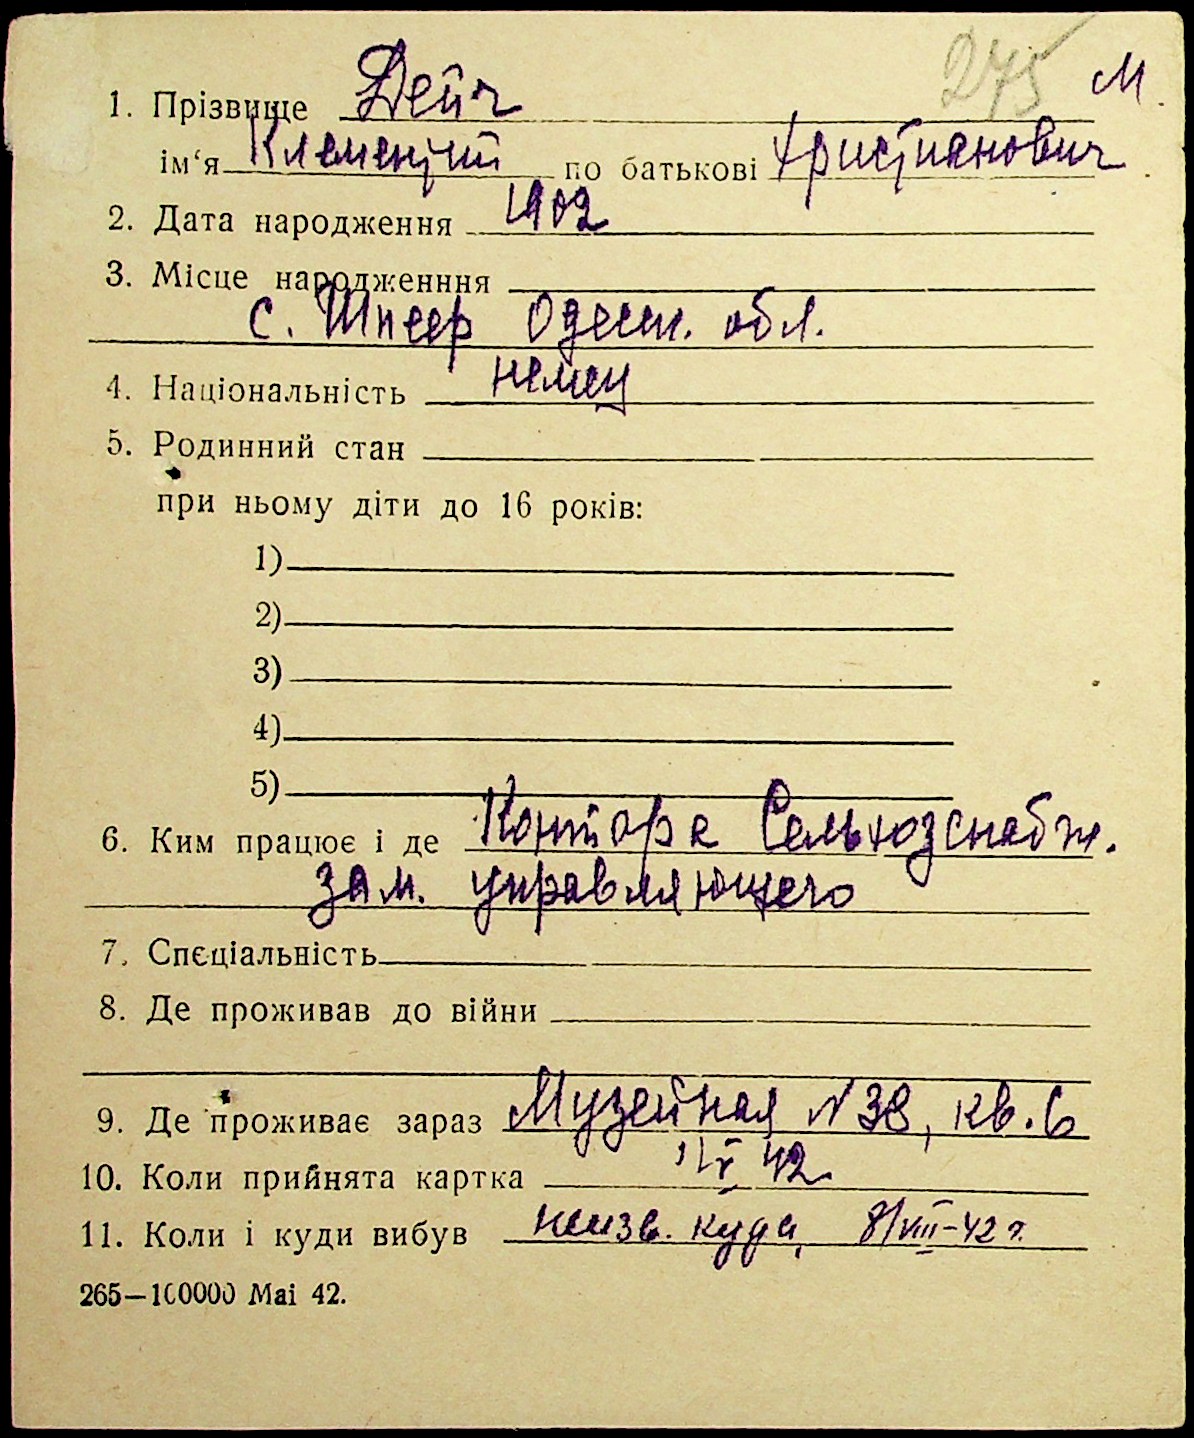 275 М.
1. Прізвище Дейч
ім‘я Клементий по батькові Христианович
2. Дата народження 1902
3. Місце народженння
с. Шпеер Одесск. обл.
4. Національність немец
5. Родинний стан
при ньому діти до 16 років:
1)
2)
3)
4)
5)
6. Ким працює і де Контора Сельхозснабж.
зам. управляющего
7. Спєціальність
8. Де проживав до війни
9. Де проживає зараз Музейная № 38, кв. 6
10. Коли прийнята картка 42
11. Коли і куди вибув неизв. куда, 8/VIII-42 г.
265—100000 Mai 42.